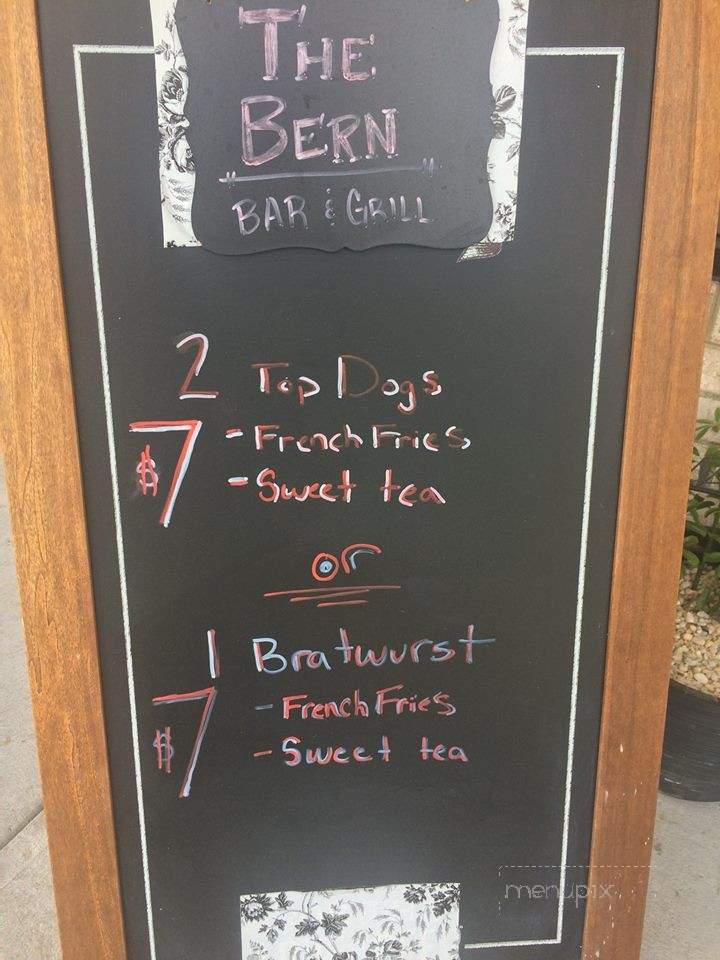 THE
BERN
BAR & GRILL
2 Top Dogs
$7 - French Fries
- Sweet tea
or
1 Bratwurst
$7 - French Fries
- Sweet tea
menupix